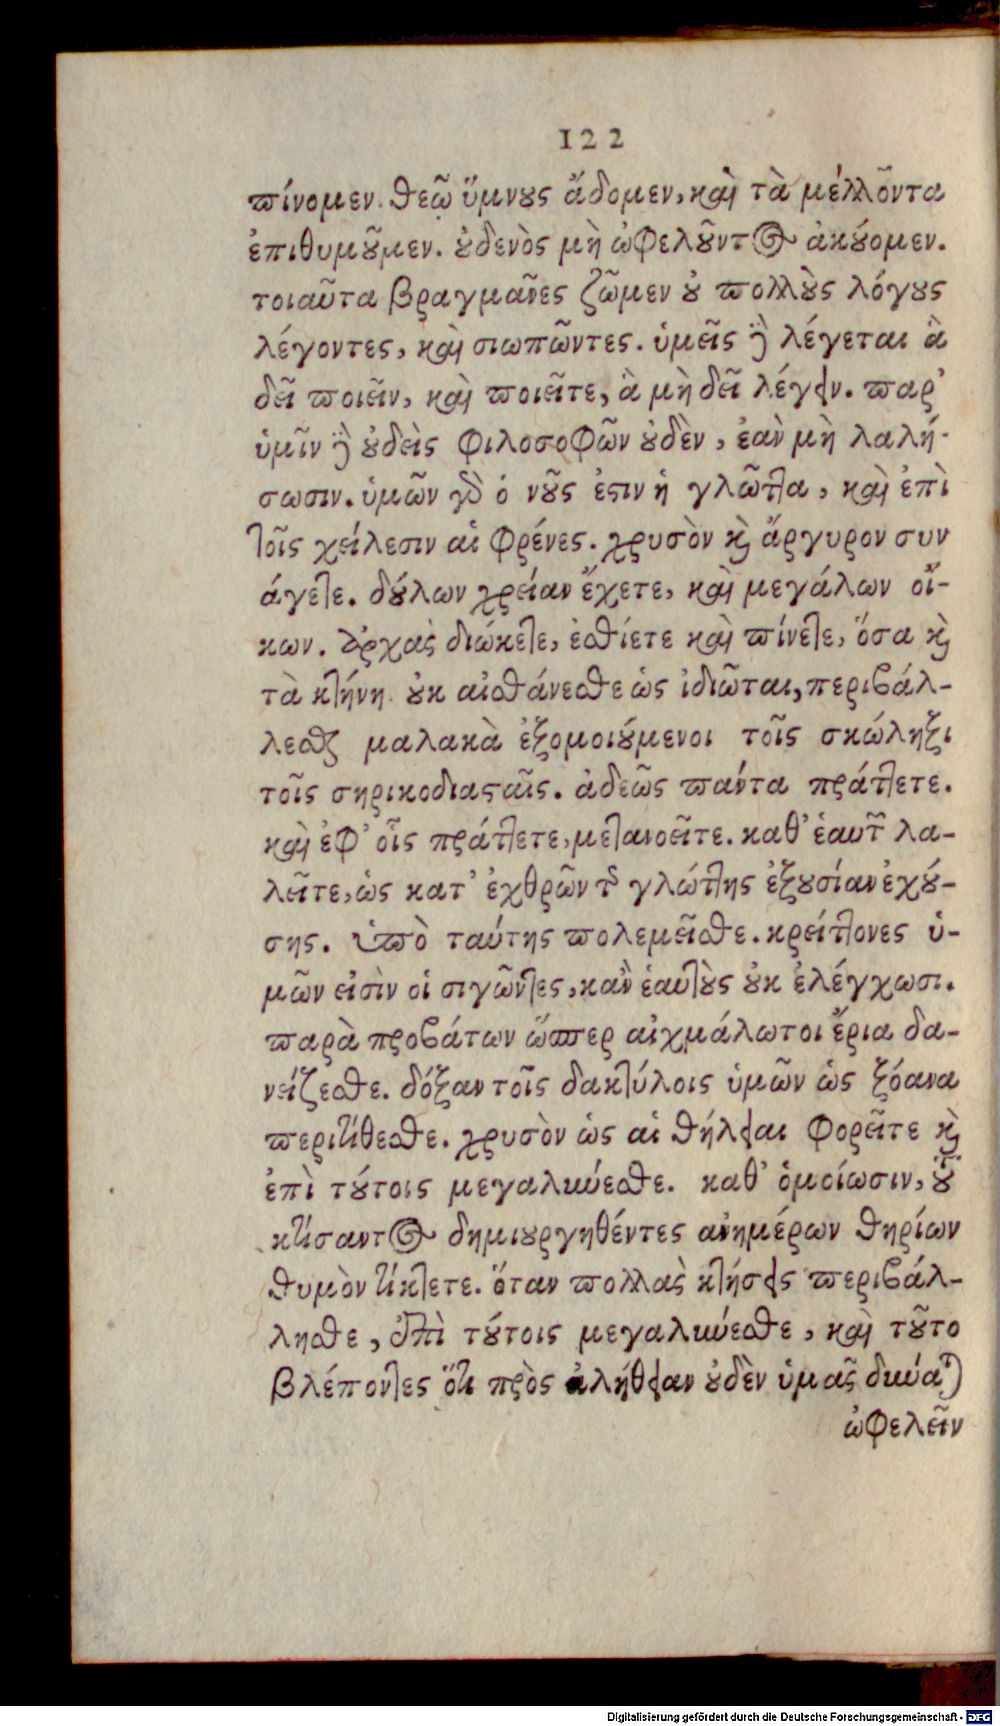 122
πίνομεν. θεῷ ὕμνους ᾄδομεν, καὶ τὰ μέλλοντα
ἐπιθυμοῦμεν. οὐδενὸς μὴ ὠφελοῦντος ἀκούομεν.
τοιαῦτα βραγμᾶνες ζῶμεν οὐ πολλοὺς λόγους
λέγοντες, καὶ σιωπῶντες. ὑμεῖς δὲ λέγεται ἃ
δεῖ ποιεῖν, καὶ ποιεῖτε, ἃ μὴ δεῖ λέγειν. παρ’
ὑμῖν δὲ οὐδεὶς φιλοσοφῶν οὐδὲν, ἐὰν μὴ λαλή-
σωσιν. ὑμῶν γὰρ ὁ νοῦς ἐστιν ἡ γλῶττα, καὶ ἐπὶ
τοῖς χείλεσιν αἱ φρένες. χρυσὸν καὶ ἄργυρον συν
άγετε. δούλων χρείαν ἔχετε, καὶ μεγάλων οἴ-
κων. ἀρχὰς διώκετε, ἐσθίετε καὶ πίνετε, ὅσα καὶ
τὰ κτήνη. οὐκ αἰσθάνεσθε ὡς ἰδιῶται, περιβάλ-
λεσθε μαλακὰ ἐξομοιούμενοι τοῖς σκώληξι
τοῖς σηρικοδιασταῖς. ἀδεῶς πάντα πράττετε.
καὶ ἐφ’ οἷς πράττετε, μετανοεῖτε. καθ’ ἑαυτῶν λα-
λεῖτε, ὡς κατ’ ἐχθρῶν τῆς γλώττης ἐξουσίαν ἐχού-
σης. ὑπὸ ταύτης πολεμεῖσθε. κρείττονες ὑ-
μῶν εἰσὶν οἱ σιγῶντες, κἂν ἑαυτοὺς οὐκ ἐλέγχωσι.
παρὰ προβάτων ὥσπερ αἰχμάλωτοι ἔρια δα-
νείζεσθε. δόξαν τοῖς δακτύλοις ὑμῶν ὡς ξόανα
περιτίθεσθε. χρυσὸν ὡς αἱ θήλειαι φορεῖτε καὶ
ἐπὶ τούτοις μεγαλύνεσθε. καθ’ ὁμοίωσιν, τοῦ
κτίσαντος δημιουργηθέντες ἀνημέρων θηρίων
θυμὸν τίκτετε. ὅταν πολλὰς κτήσεις περιβάλ-
λησθε, ἐπὶ τούτοις μεγαλύνεσθε, καὶ τοῦτο
βλέποντες ὅτι πρὸς ἀλήθειαν οὐδὲν ὑμᾶς δύναται
ὠφελεῖν
Digitalisierung gefördert durch die Deutsche Forschungsgemeinschaft - DFG